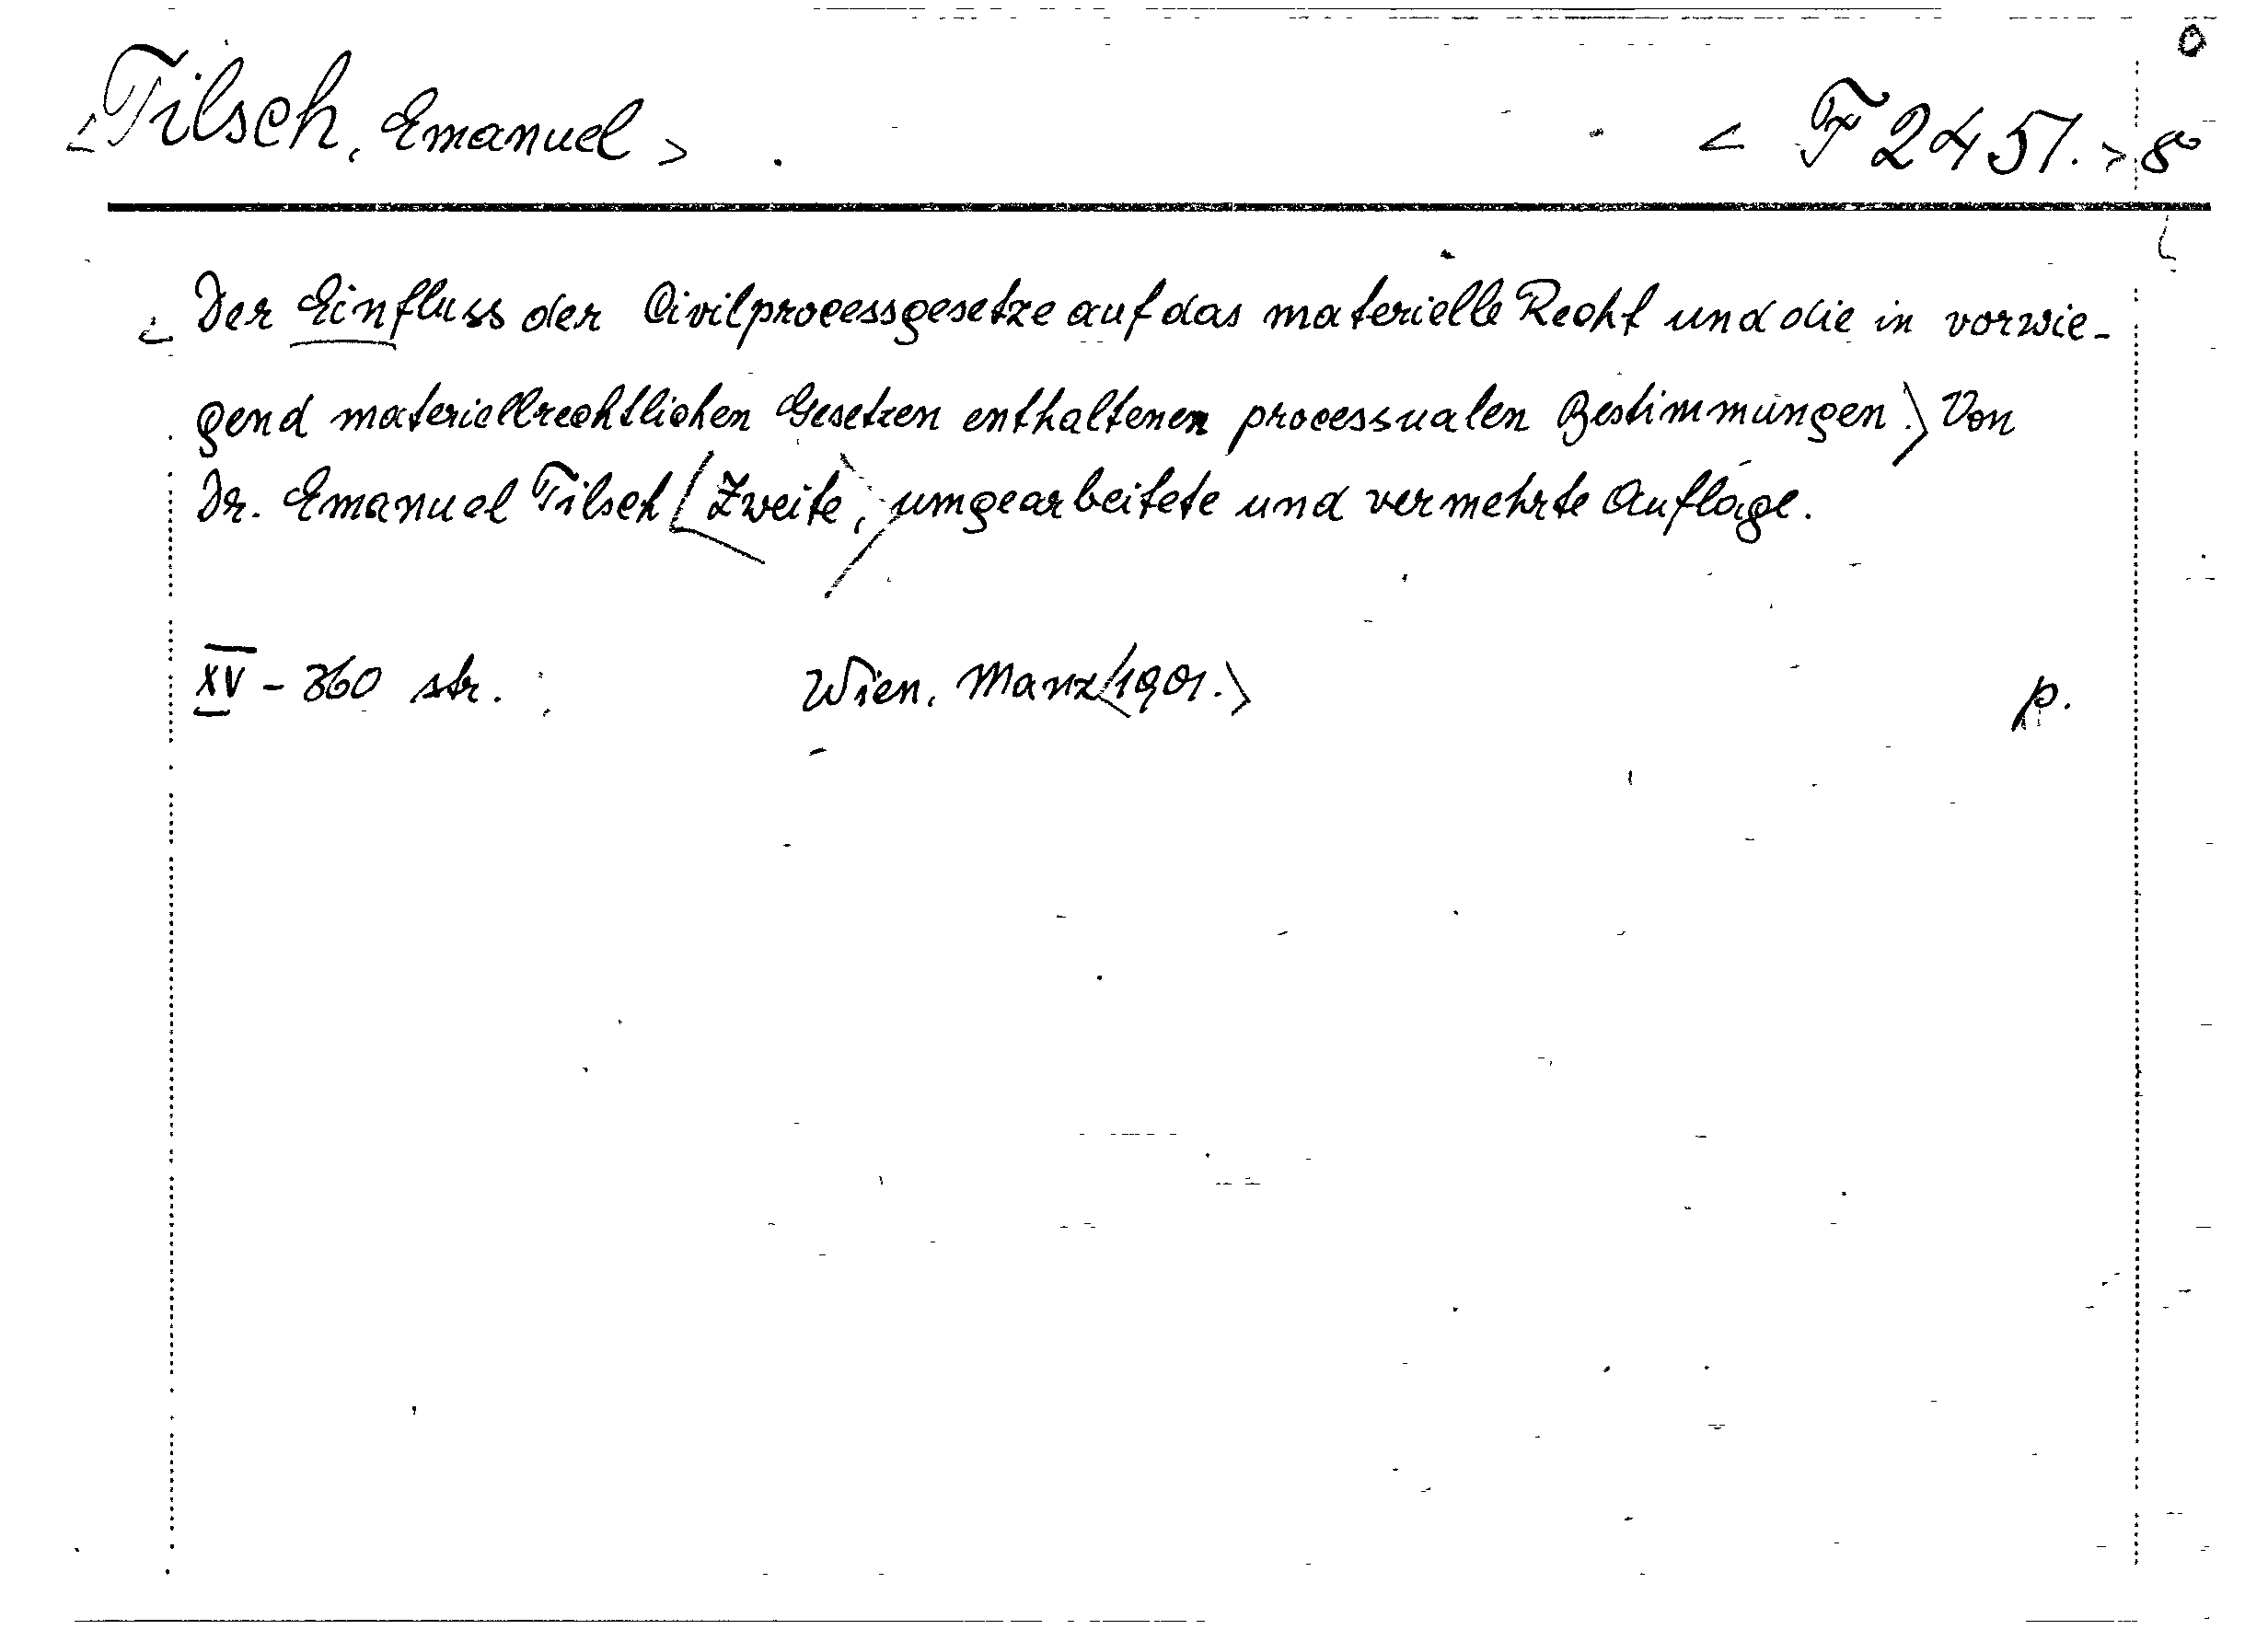 <Tilsch, Emanuel> <F 2451.> 8°
<Der Einfluss der Civilprocessgesetze auf das materielle Recht und die in vorwie-
gend materiellrechtlichen Gesetzen enthaltenen processualen Bestimmungen.> Von
Dr. Emanuel Tilsch <Zweite,> umgearbeitete und vermehrte Auflage.
XV - 360 str. Wien. Manz <1901.> p.